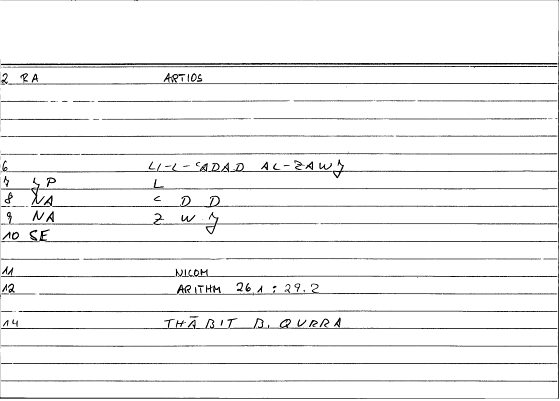 2 RA ARTIOS
6 LI-L-ʿADAD AL-ZAWJ
7 JP L
8 NA ʿ D D
9 NA Z W J
10 SE
11 NICOM
12 ARITHM 26,1 ; 29.2
14 THĀBIT B. QURRA